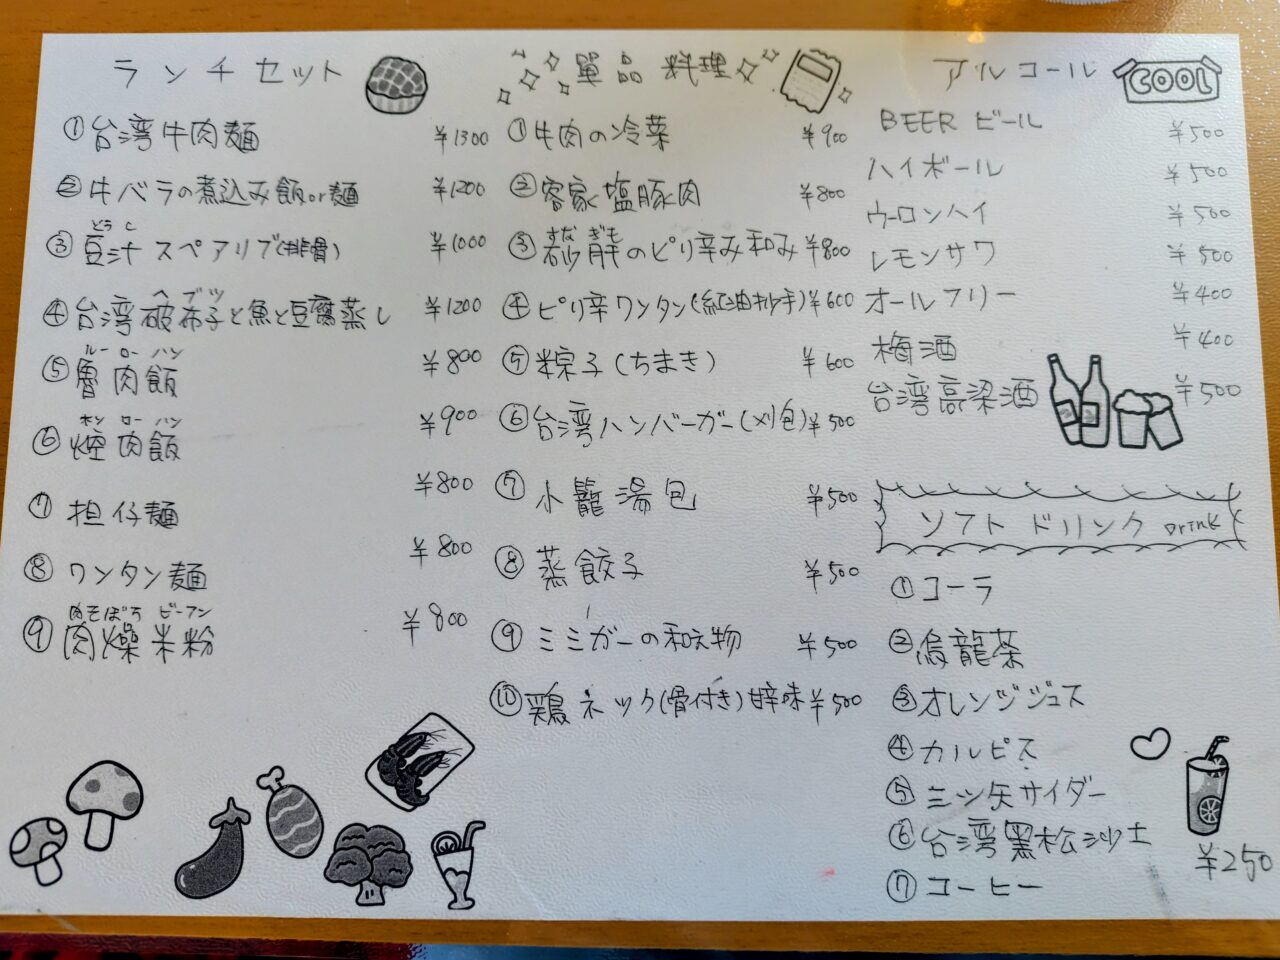 ランチセット
① 台湾牛肉麺 ¥1300
② 牛バラの煮込み飯or麺 ¥1200
とうし
③ 豆汁スペアリブ(排骨) ¥1000
ヘプツ
④ 台湾破布子と魚と豆腐蒸し ¥1200
ルーローハン
⑤ 魯肉飯 ¥800
ホンローハン
⑥ 焢肉飯 ¥900
⑦ 担仔麺 ¥800
⑧ ワンタン麺 ¥800
肉そぼろ ビーフン
⑨ 肉燥米粉 ¥800
單品料理
① 牛肉の冷菜 ¥900
② 客家塩豚肉 ¥800
すなぎも
③ のピリ辛み和み ¥800
④ ピリ辛ワンタン(紅油抄手) ¥600
⑤ 粽子(ちまき) ¥600
⑥ 台湾ハンバーガー(刈包) ¥500
⑦ 小籠湯包 ¥500
⑧ 蒸餃子 ¥500
⑨ ミミガーの和え物 ¥500
⑩ 鶏ネック(骨付き)甘辛味 ¥500
アルコール
COOL
BEER ビール ¥500
ハイボール ¥500
ウーロンハイ ¥500
レモンサワ ¥500
オールフリー ¥400
梅酒 ¥400
台湾高梁酒 ¥500
ソフトドリンク Drink
① コーラ
② 烏龍茶
③ オレンジジュス
④ カルピス
⑤ 三ツ矢サイダー
⑥ 台湾黑松沙士
⑦ コーヒー
¥250